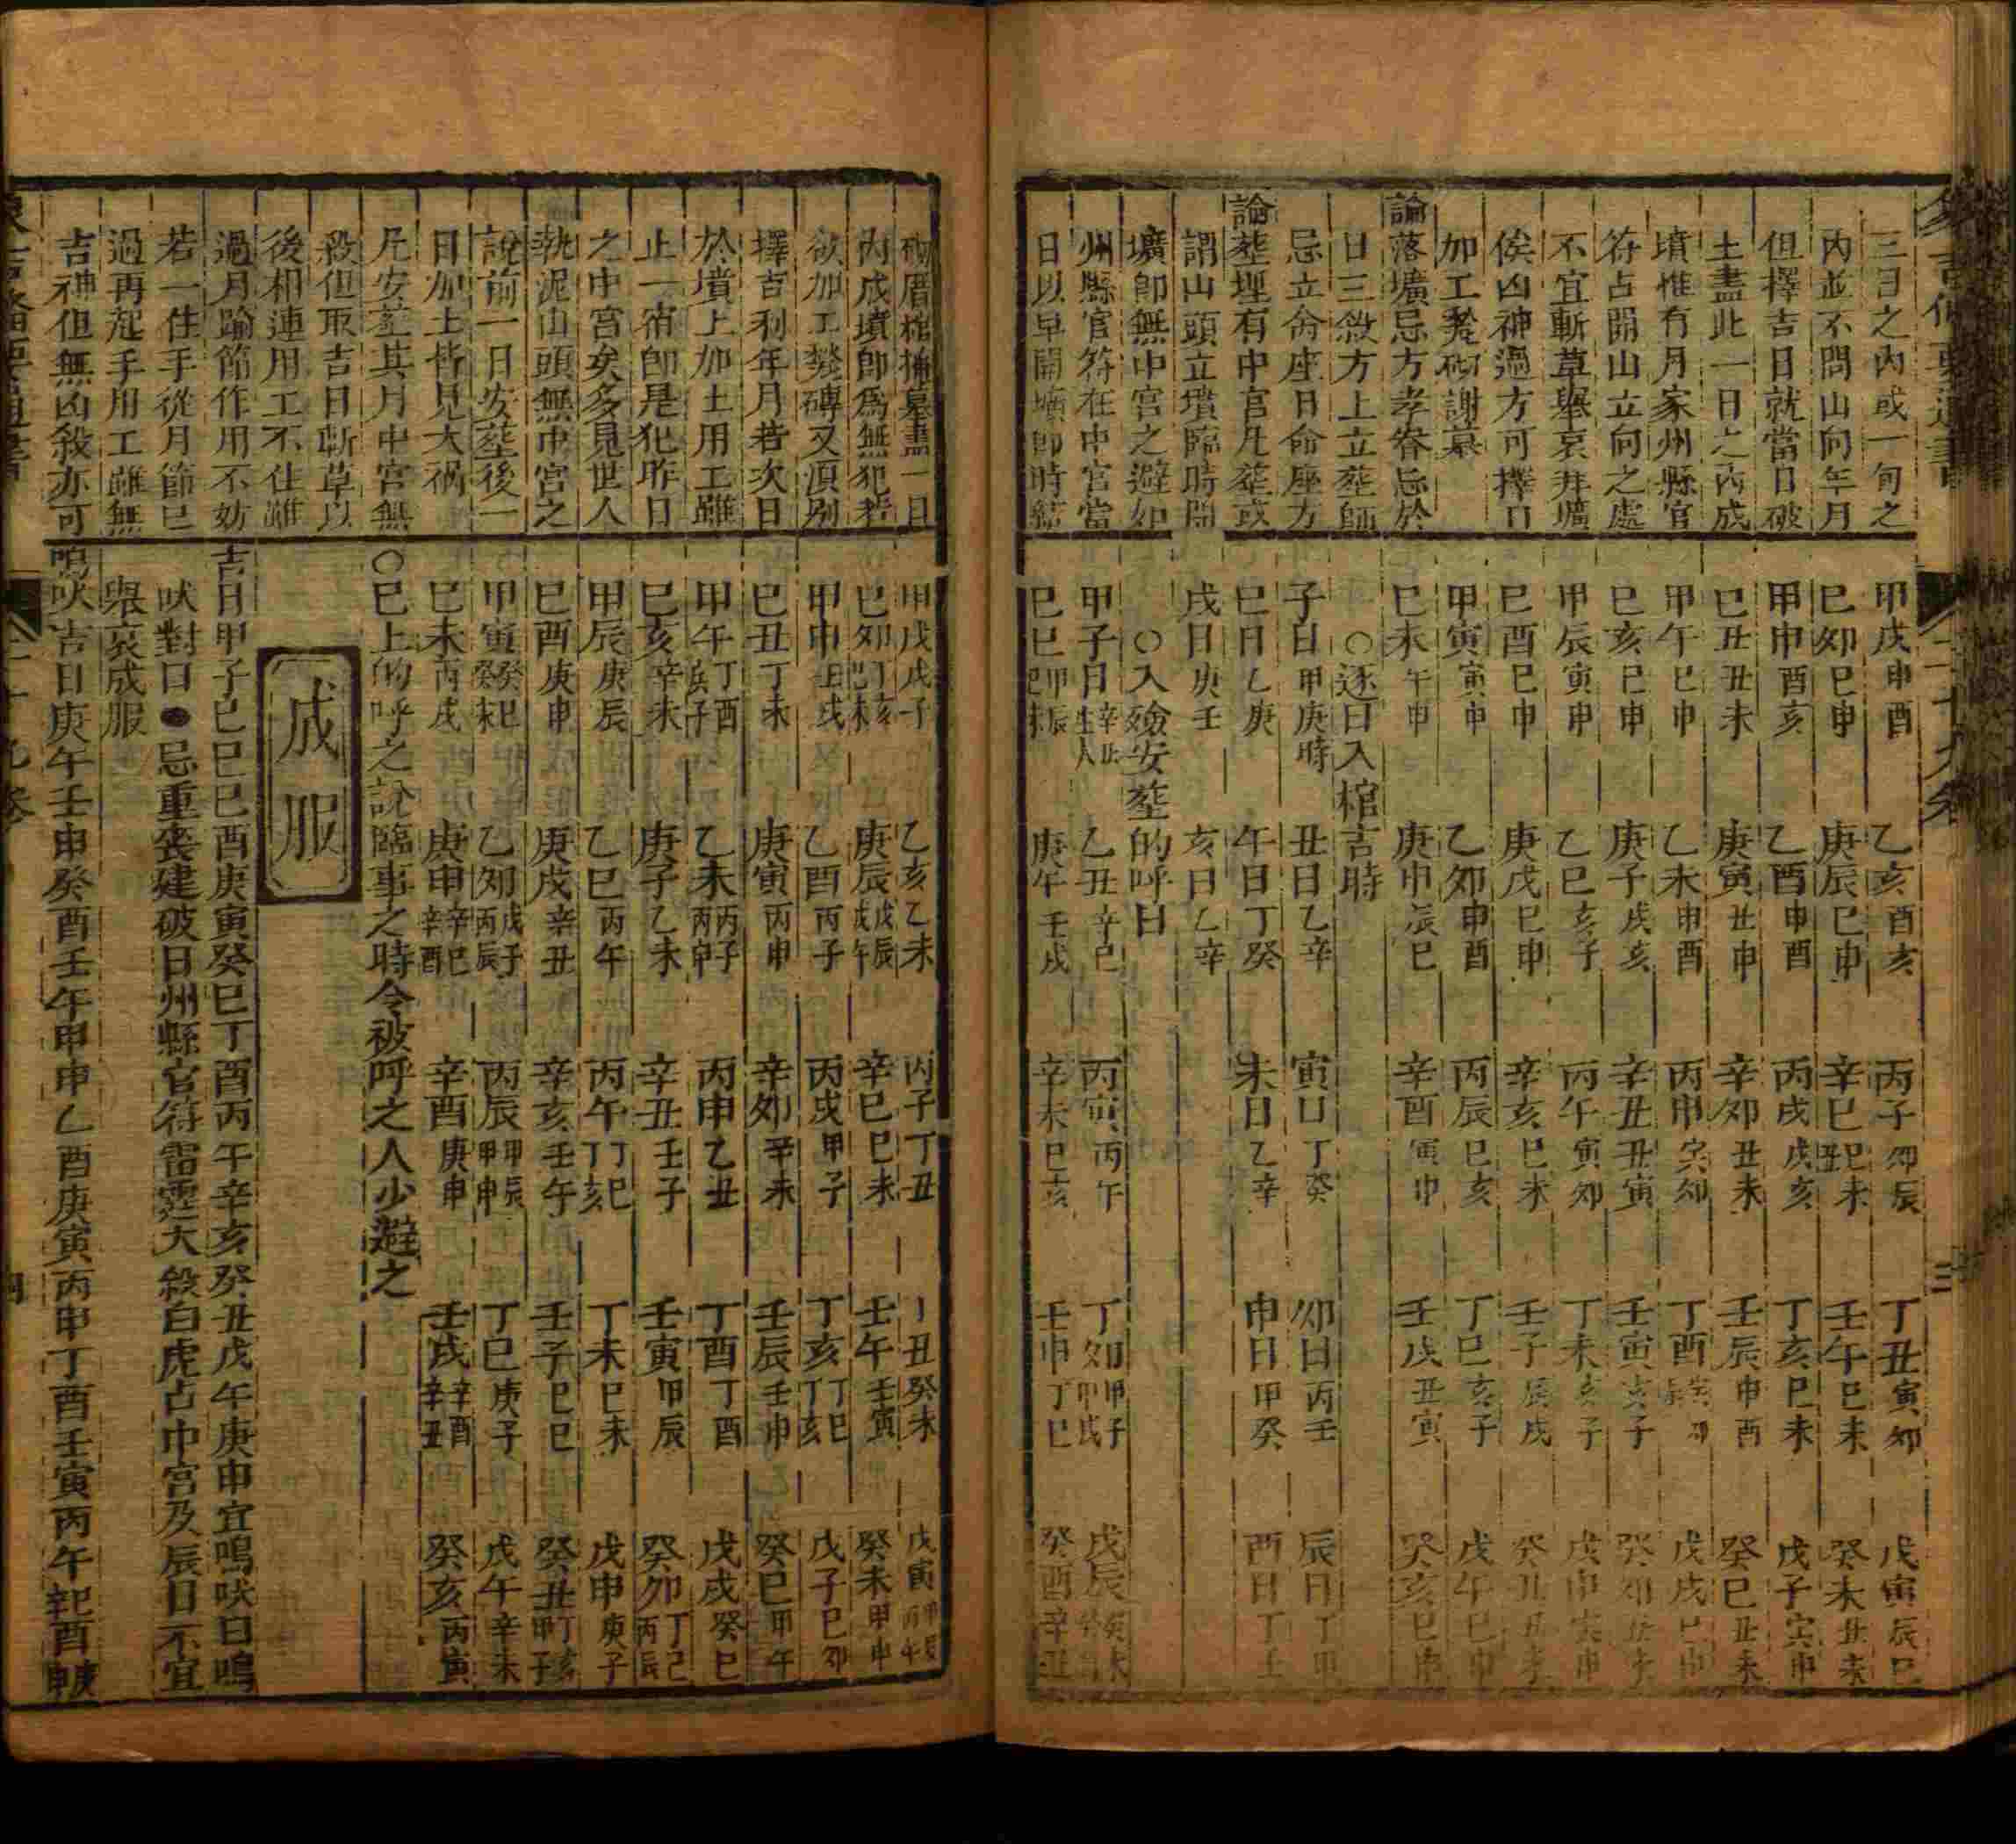 象吉備要通書
二十九卷
三
三日之內或一旬之
內並不問山向年月
但擇吉日就當日破
土盡此一日之內成
墳惟有月家州縣官
符占開山立向之處
不宜斬草舉哀井壙
俟凶神過方可擇日
加工發砌謝墓
論落壙忌方孝眷忌於
日三殺方上立塟師
忌立命座日命座方
論塟埋有中宮凡塟或
謂山頭立墳臨時開
壙卽無中宮之避如
州縣官符在中宮當
日以早開壙卽時結
甲戌申酉 乙亥酉亥 丙子卯辰 丁丑寅卯 戊寅辰巳
巳卯巳申 庚辰巳申 辛巳丑巳未 壬午巳未 癸未丑未
甲申酉亥 乙酉申酉 丙戌戌亥 丁亥巳未 戊子寅申
巳丑丑未 庚寅丑申 辛卯丑未 壬辰申酉 癸巳丑未
甲午巳申 乙未申酉 丙申寅卯 丁酉 戊戌巳申
巳亥巳申 庚子戌亥 辛丑丑寅 壬寅亥子 癸卯
甲辰寅申 乙巳亥子 丙午寅卯 丁未亥子 戊申寅申
巳酉巳申 庚戌巳申 辛亥巳未 壬子辰戌 癸丑
甲寅寅申 乙卯申酉 丙辰巳亥 丁巳亥子 戊午巳申
巳未午申 庚申辰巳 辛酉寅申 壬戌丑寅 癸亥巳申
○逐日入棺吉時
子日甲庚時 丑日乙辛 寅日丁癸 卯日丙壬 辰日丁甲
巳日乙庚 午日丁癸 未日乙辛 申日甲癸 酉日丁壬
戌日庚壬 亥日乙辛
○入殮安塟的呼日
甲子日 乙丑辛巳 丙寅丙午 丁卯甲子甲戌 戊辰
巳巳 庚午壬戌 辛未巳亥 壬申丁巳 癸酉辛丑
砌厝棺掩墓盡一日
內成墳卽爲無犯若
欲加工甃磚又須別
擇吉利年月若次日
於墳上加土用工雖
止一宿卽是犯昨日
之中宮矣多見世人
執泥山頭無中宮之
說前一日安塟後一
日加土皆見大禍
凡安塟其月中宮無
殺但取吉日斬草以
後相連用工不住雖
過月踰節作用不妨
若一住手從月節已
過再起手用工雖無
吉神但無凶殺亦可
甲戌戊子 乙亥乙未 丙子丁丑 丁丑癸未 戊寅
巳卯丁亥巳未 庚辰戊辰戊午 辛巳巳未 壬午壬寅 癸未甲申
甲申壬戌 乙酉丙子 丙戌甲子 丁亥丁巳丁亥 戊子巳卯
巳丑丁未 庚寅丙申 辛卯辛未 壬辰壬申 癸巳甲午
甲午丁酉 乙未丙子 丙申乙丑 丁酉丁酉 戊戌癸巳
巳亥辛未 庚子乙未 辛丑壬子 壬寅甲辰 癸卯丁巳丙辰
甲辰庚辰 乙巳丙午 丙午丁巳丁亥 丁未巳未 戊申庚子
巳酉庚申 庚戌辛丑 辛亥壬午 壬子巳巳 癸丑丁亥甲子
甲寅癸巳癸未 乙卯戊子丙辰 丙辰甲辰甲申 丁巳庚子 戊午辛未
巳未丙戌 庚申辛巳辛酉 辛酉庚申 壬戌辛酉辛丑 癸亥丙寅
○巳上的呼之說臨事之時令被呼之人少避之
成服
吉日甲子巳巳巳酉庚寅癸巳丁酉丙午辛亥癸丑戊午庚申宜鳴吠日鳴
吠對日●忌重喪建破日州縣官符雷霆大殺白虎占中宮及辰日不宜
舉哀成服
鳴吠吉日庚午壬申癸酉壬午甲申乙酉庚寅丙申丁酉壬寅丙午